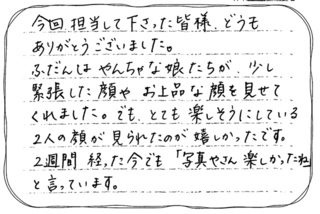 今回担当して下さった皆様、どうも
ありがとうございました。
ふだんは やんちゃな娘たちが、少し
緊張した顔や お上品な顔を見せて
くれました。でも、とても楽しそうにしている
2人の顔が見られたのが嬉しかったです。
2週間 経った今でも「写真やさん 楽しかったね」
と言っています。